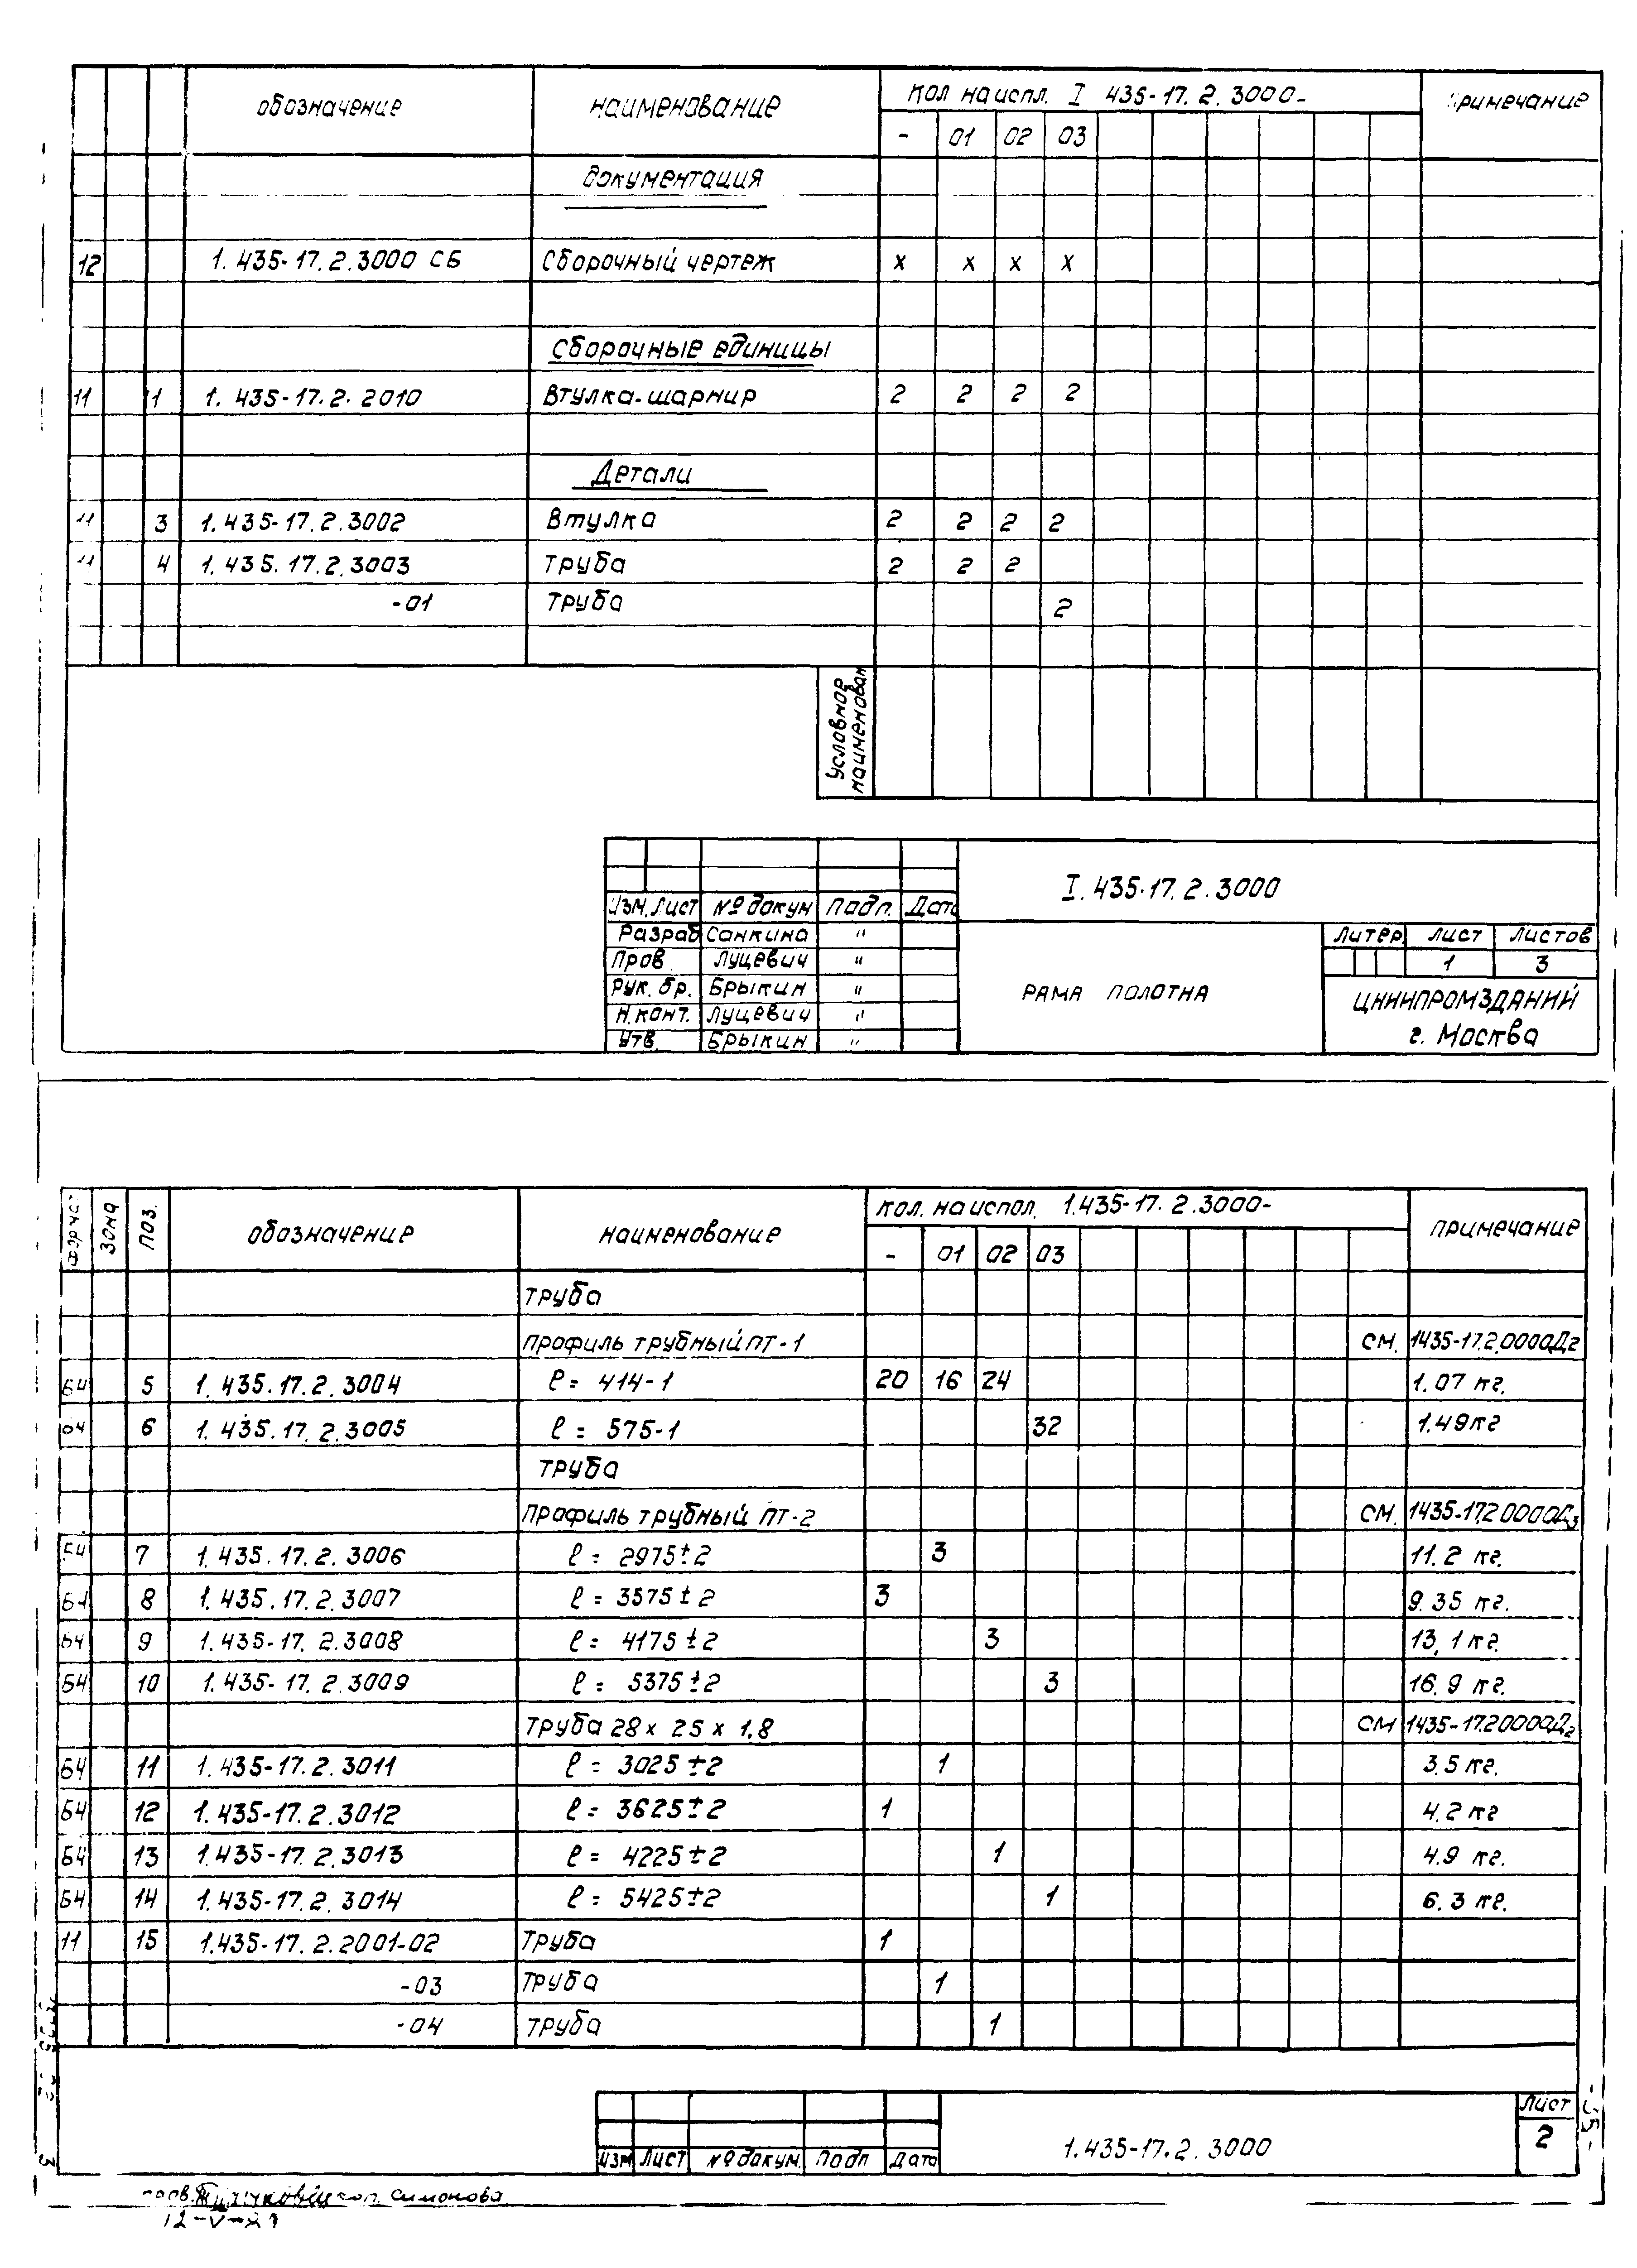 обозначение наименование кол на испл. I 435-17.2.3000- примечание
- 01 02 03
Документация
12 1.435-17.2.3000 СБ Сборочный чертеж х х х х
Сборочные единицы
11 1 1.435-17.2.2010 Втулка-шарнир 2 2 2 2
Детали
11 3 1.435-17.2.3002 Втулка 2 2 2 2
11 4 1.435.17.2.3003 Труба 2 2 2
-01 Труба 2
Условное наименован
I.435-17.2.3000
Изм. Лист № докум Подп. Дата
Разраб Санкина "
Пров. Луцевич "
Рук. бр. Брыкин "
Н.конт. Луцевич "
Утв. Брыкин "
РАМА ПОЛОТНА
Литер. Лист Листов
1 3
ЦНИИПРОМЗДАНИЙ
г. Москва
Зона Поз. обозначение наименование кол. на испол. 1.435-17.2.3000- примечание
- 01 02 03
Труба
Профиль трубный ПТ-1 см. 1435-17.2.0000Д2
Б4 5 1.435.17.2.3004 ℓ = 414-1 20 16 24 1.07 кг.
Б4 6 1.435.17.2.3005 ℓ = 575-1 32 1.49кг
Труба
Профиль трубный ПТ-2 см. 1435-17.2 0000Д3
Б4 7 1.435.17.2.3006 ℓ = 2975±2 3 11.2 кг.
Б4 8 1.435.17.2.3007 ℓ = 3575±2 3 9.35 кг.
Б4 9 1.435-17.2.3008 ℓ = 4175±2 3 13,1 кг.
Б4 10 1.435-17.2.3009 ℓ = 5375±2 3 16.9 кг.
Труба 28 х 25 х 1.8 см 1435-17.2 0000Д2
Б4 11 1.435-17.2.3011 ℓ = 3025±2 1 3.5 кг.
Б4 12 1.435-17.2.3012 ℓ = 3625±2 1 4.2 кг
Б4 13 1.435-17.2.3013 ℓ = 4225±2 1 4.9 кг.
Б4 14 1.435-17.2.3014 ℓ = 5425±2 1 6.3 кг.
11 15 1.435-17.2.2001-02 Труба 1
-03 Труба 1
-04 Труба 1
Изм Лист № докум. Подп Дата
1.435-17.2.3000
Лист
2
Симонова